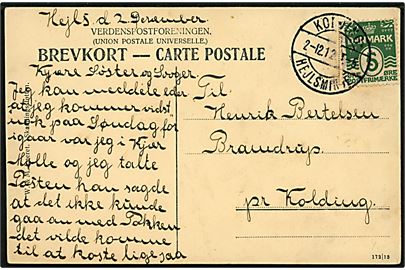 Hejls d 2 December.
VERDENSPOSTFORENINGEN.
(UNION POSTALE UNIVERSELLE.)
BREVKORT — CARTE POSTALE
Kjære Søster og Svoger
Jeg kan meddele eder
at jeg kommer vidst
nok paa Søndag for
igaar var jeg i Kjær
Mølle og jeg talte
Posten han sagde
at det ikke kunde
gaa an med Pakken
det vilde komme
til at koste ligesaa
Til
Henrik Bertelsen
Bramdrup.
pr Kolding.
DANMARK
5
ØRE
FRIMÆRKE
2-12.12
HEJLSMINDE